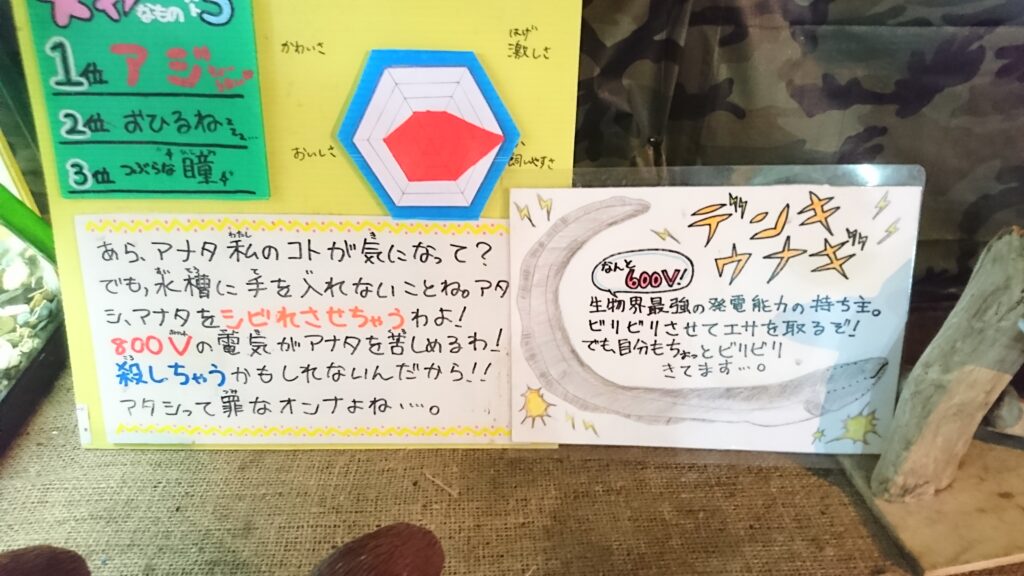 なもの
1位 アジ
2位 おひるね
3位 つぶらな瞳
かわいさ
激しさ
おいしさ
飼いやすさ
あら、アナタ私のコトが気になって?
でも、水槽に手を入れないことね。アタ
シ、アナタをシビれさせちゃうわよ!
800Vの電気がアナタを苦しめるわ!
殺しちゃうかもしれないんだから!!
アタシって罪なオンナよね…。
デンキ
ウナギ
なんと
600V!
生物界最強の発電能力の持ち主。
ビリビリさせてエサを取るぞ!
でも、自分もちょっとビリビリ
きてます…。